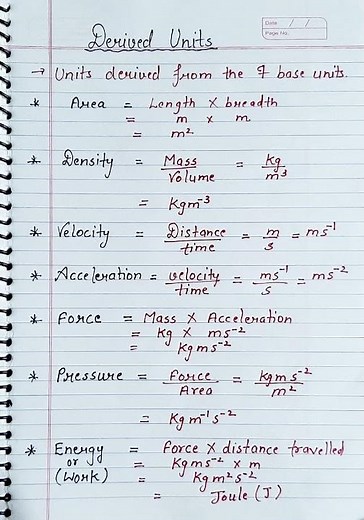 Date / /
Page No.
Derived Units
→ Units derived from the 7 base units.
* Area = Length × breadth
= m × m
= m²
* Density = Mass/Volume = kg/m³
= Kgm⁻³
* Velocity = Distance/time = m/s = ms⁻¹
* Acceleration = velocity/time = ms⁻¹/s = ms⁻²
* Force = Mass × Acceleration
= Kg × ms⁻²
= Kgms⁻²
* Pressure = Force/Area = kgms⁻²/m²
= Kgm⁻¹s⁻²
* Energy or (Work) = Force × distance travelled
= Kgms⁻² × m
= Kgm²s⁻²
= Joule (J)